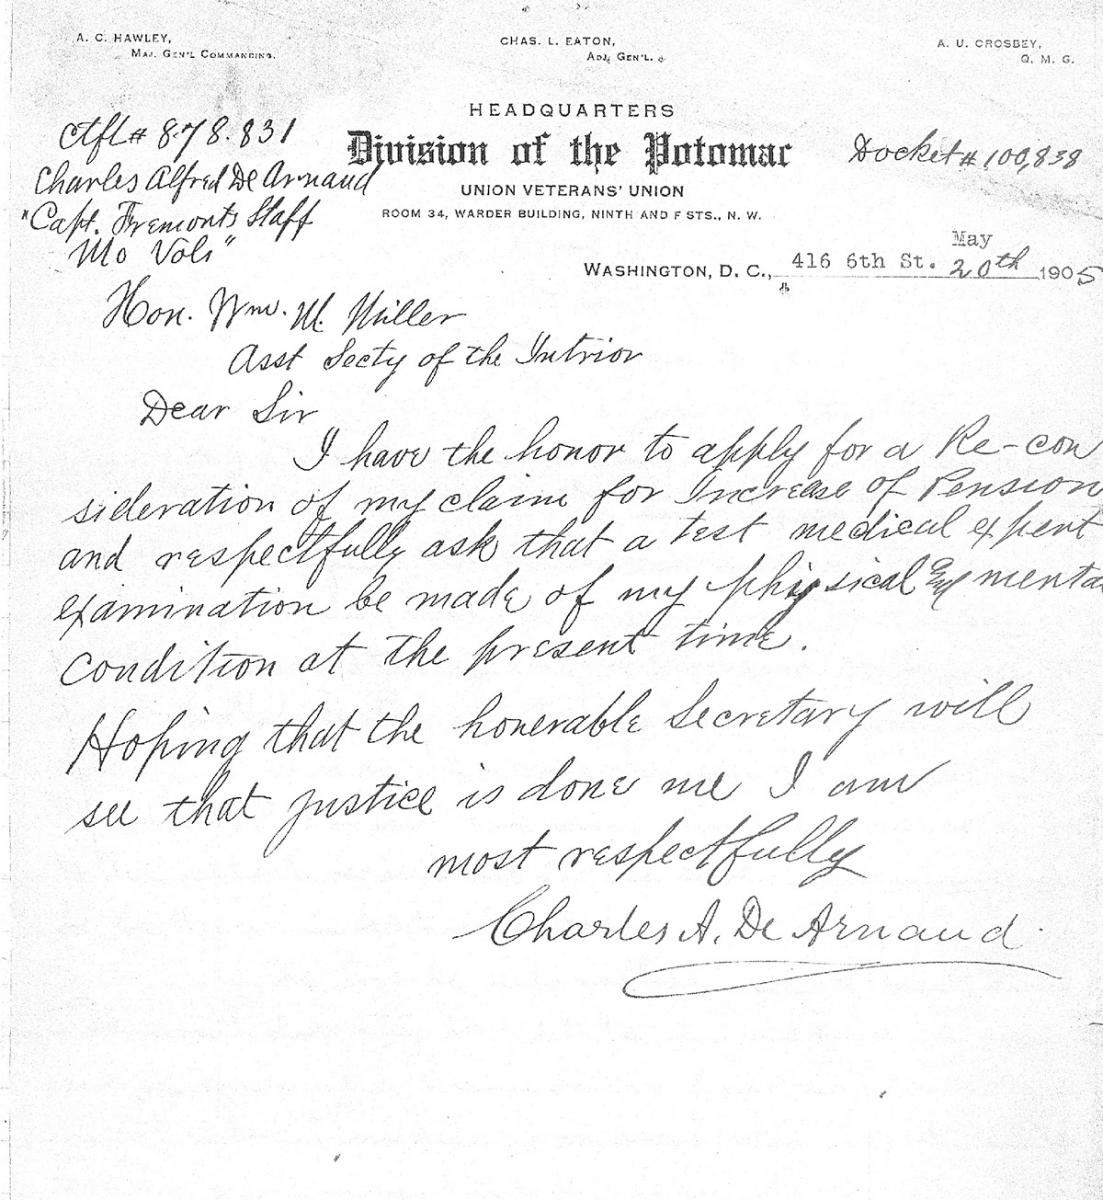 A. C. HAWLEY,
MAJ. GEN'L COMMANDING.
CHAS. L. EATON,
ADJ. GEN'L.
A. U. CROSBEY,
Q. M. G.
HEADQUARTERS
Division of the Potomac
UNION VETERANS' UNION
ROOM 34, WARDER BUILDING, NINTH AND F STS., N. W.
Ctfl # 878.831
Charles Alfred De Arnaud
"Capt. Fremonts Staff
Mo Vols"
Docket # 100,838
May
WASHINGTON, D. C., 416 6th St. 20th 1905
Hon. Wm. M. Miller
Asst Secty of the Intrior
Dear Sir
I have the honor to apply for a Re-con
sideration of my claim for Increase of Pension
and respectfully ask that a test medical expert
examination be made of my physical & mental
condition at the present time.
Hoping that the honerable Secretary will
see that justice is done me I am
most respectfully
Charles A. De Arnaud